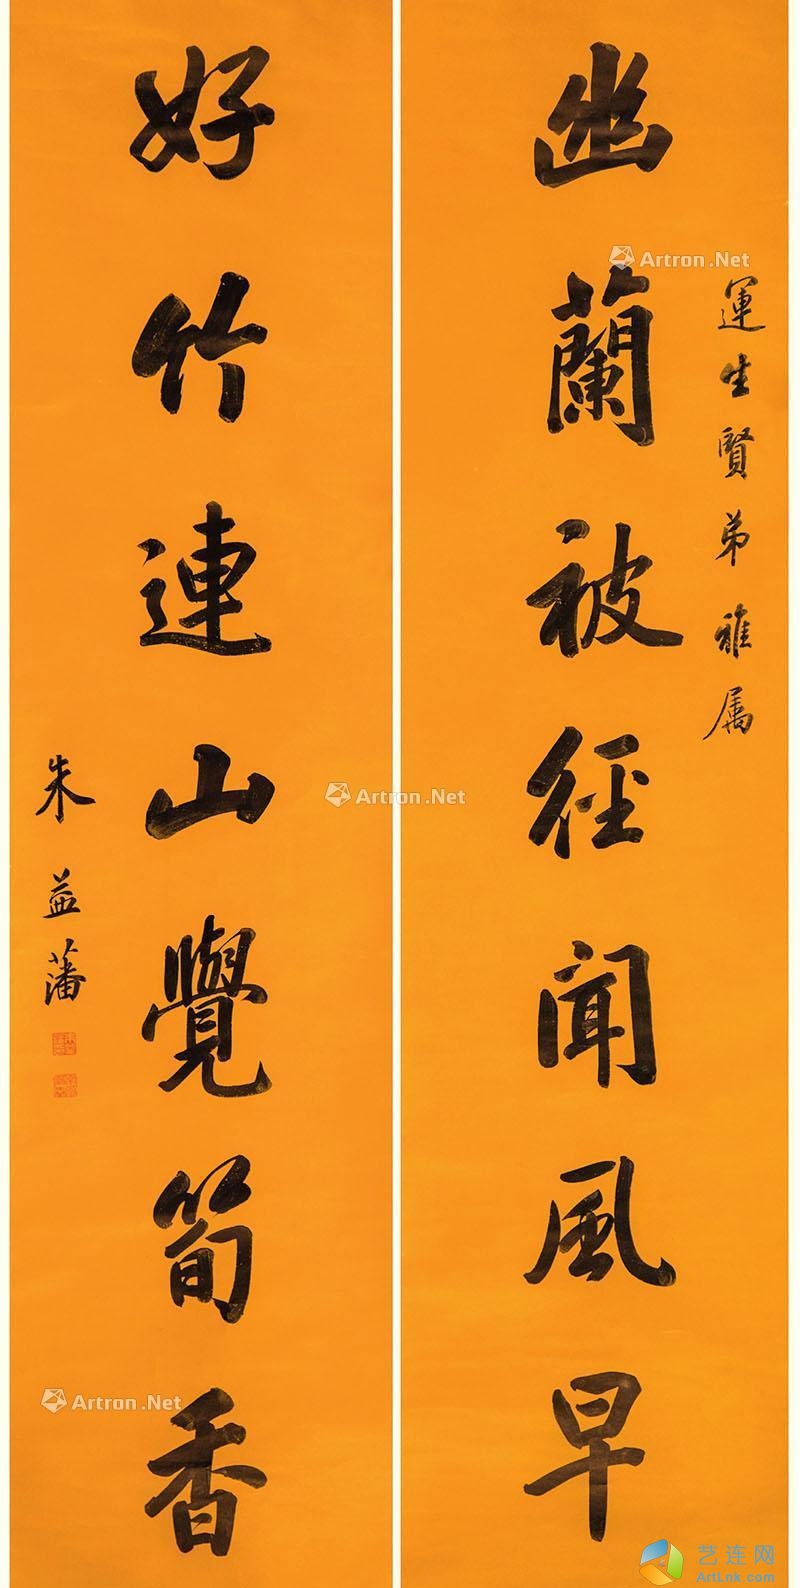 運生賢弟雅属
幽蘭被径聞風早
好竹連山覺筍香
朱益藩
Artron.Net
Artron.Net
Artron.Net
艺连网
ArtLnk.com